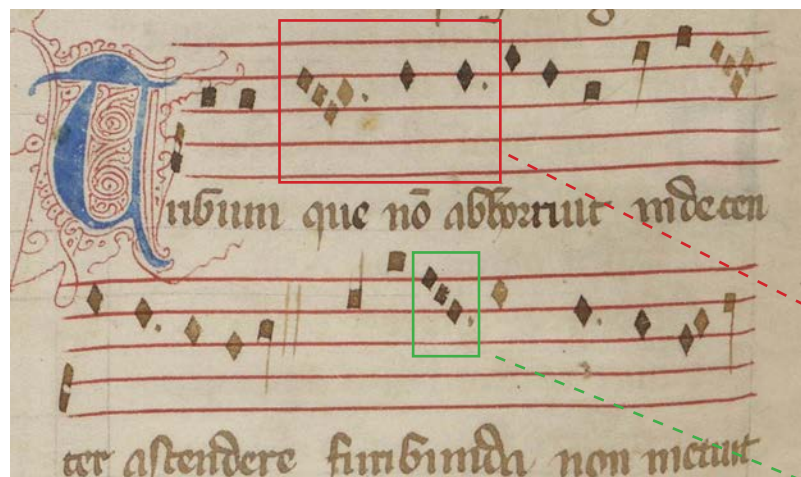 Tribum que nō abhorruit indecen
ter ascendere furibunda non metuit